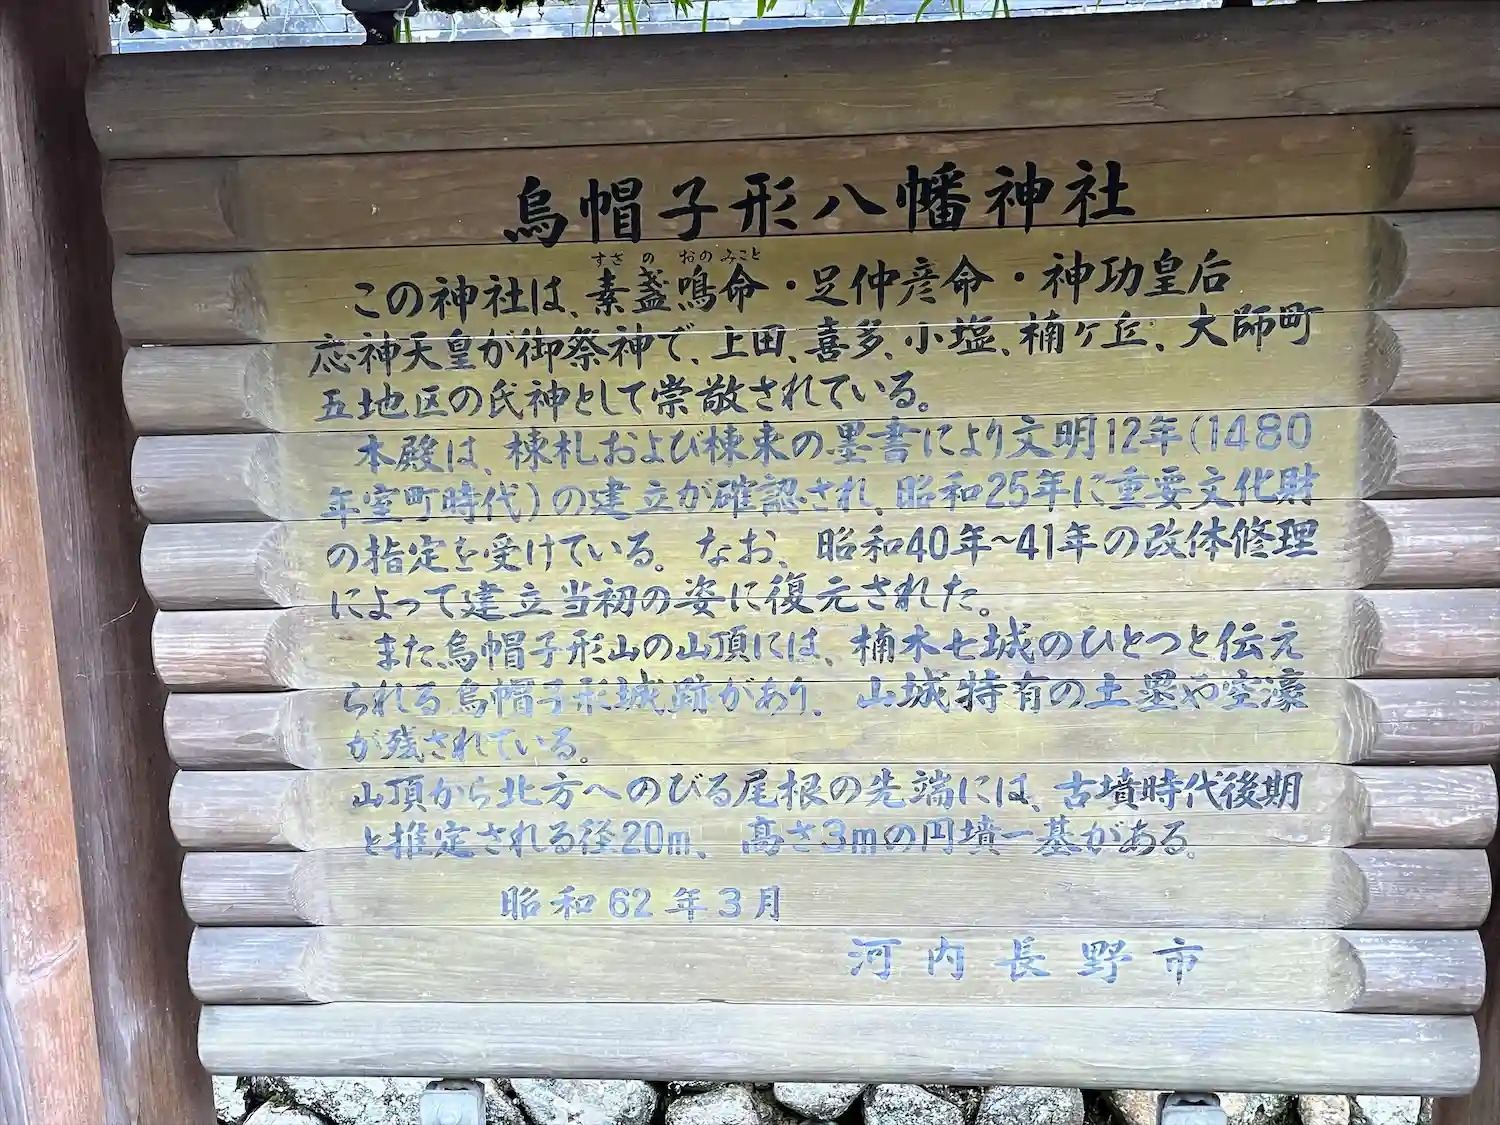 烏帽子形八幡神社
すさの おのみこと
この神社は、素盞鳴命・足仲彦命・神功皇后
応神天皇が御祭神で、上田、喜多、小塩、楠ヶ丘、大師町
五地区の氏神として崇敬されている。
本殿は、棟札および棟束の墨書により文明12年(1480
年室町時代)の建立が確認され、昭和25年に重要文化財
の指定を受けている。なお、昭和40年~41年の改体修理
によって建立当初の姿に復元された。
また烏帽子形山の山頂には、楠木七城のひとつと伝え
られる烏帽子形城跡があり、山城特有の土塁や空濠
が残されている。
山頂から北方へのびる尾根の先端には、古墳時代後期
と推定される径20m、高さ3mの円墳一基がある。
昭和62年3月
河内長野市